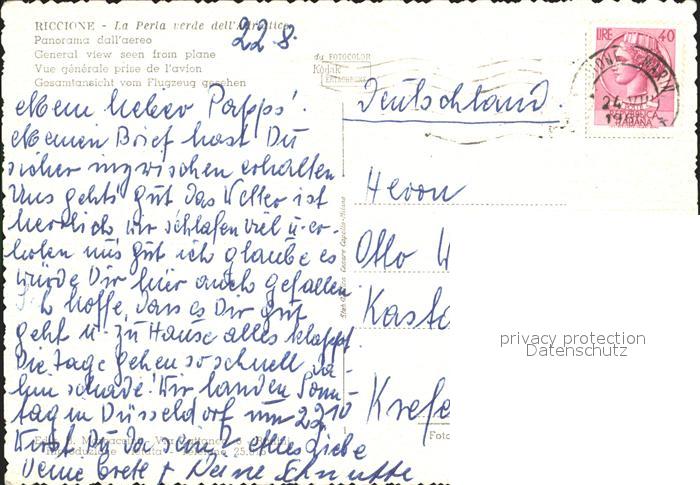 RICCIONE - La Perla verde dell'Adriatico
22 8.
Panorama dall'aereo
General view seen from plane
Vue générale prise de l'avion
Gesamtansicht vom Flugzeug gesehen
da FOTOCOLOR
Kodak
EKTACHROME
LIRE 40
24 VIII
Mein lieber Papps!
Meinen Brief hast Du
sicher inzwischen erhalten
Uns geht's gut das Wetter ist
herrlich wir schlafen viel u-er-
holen uns gut ich glaube es
würde Dir hier auch gefallen
Ich hoffe, dass es Dir gut
geht u- zu Hause alles klappt.
Die Tage gehen so schnell da-
hin schade! Wir landen Sonn-
tag in Düsseldorf um 22 10
Wirst Du da sein? alles liebe
Deine Grete + Deine Schnutte
Deutschland.
Herrn
Otto W
Kaste
Krefe
privacy protection
Datenschutz
Foto